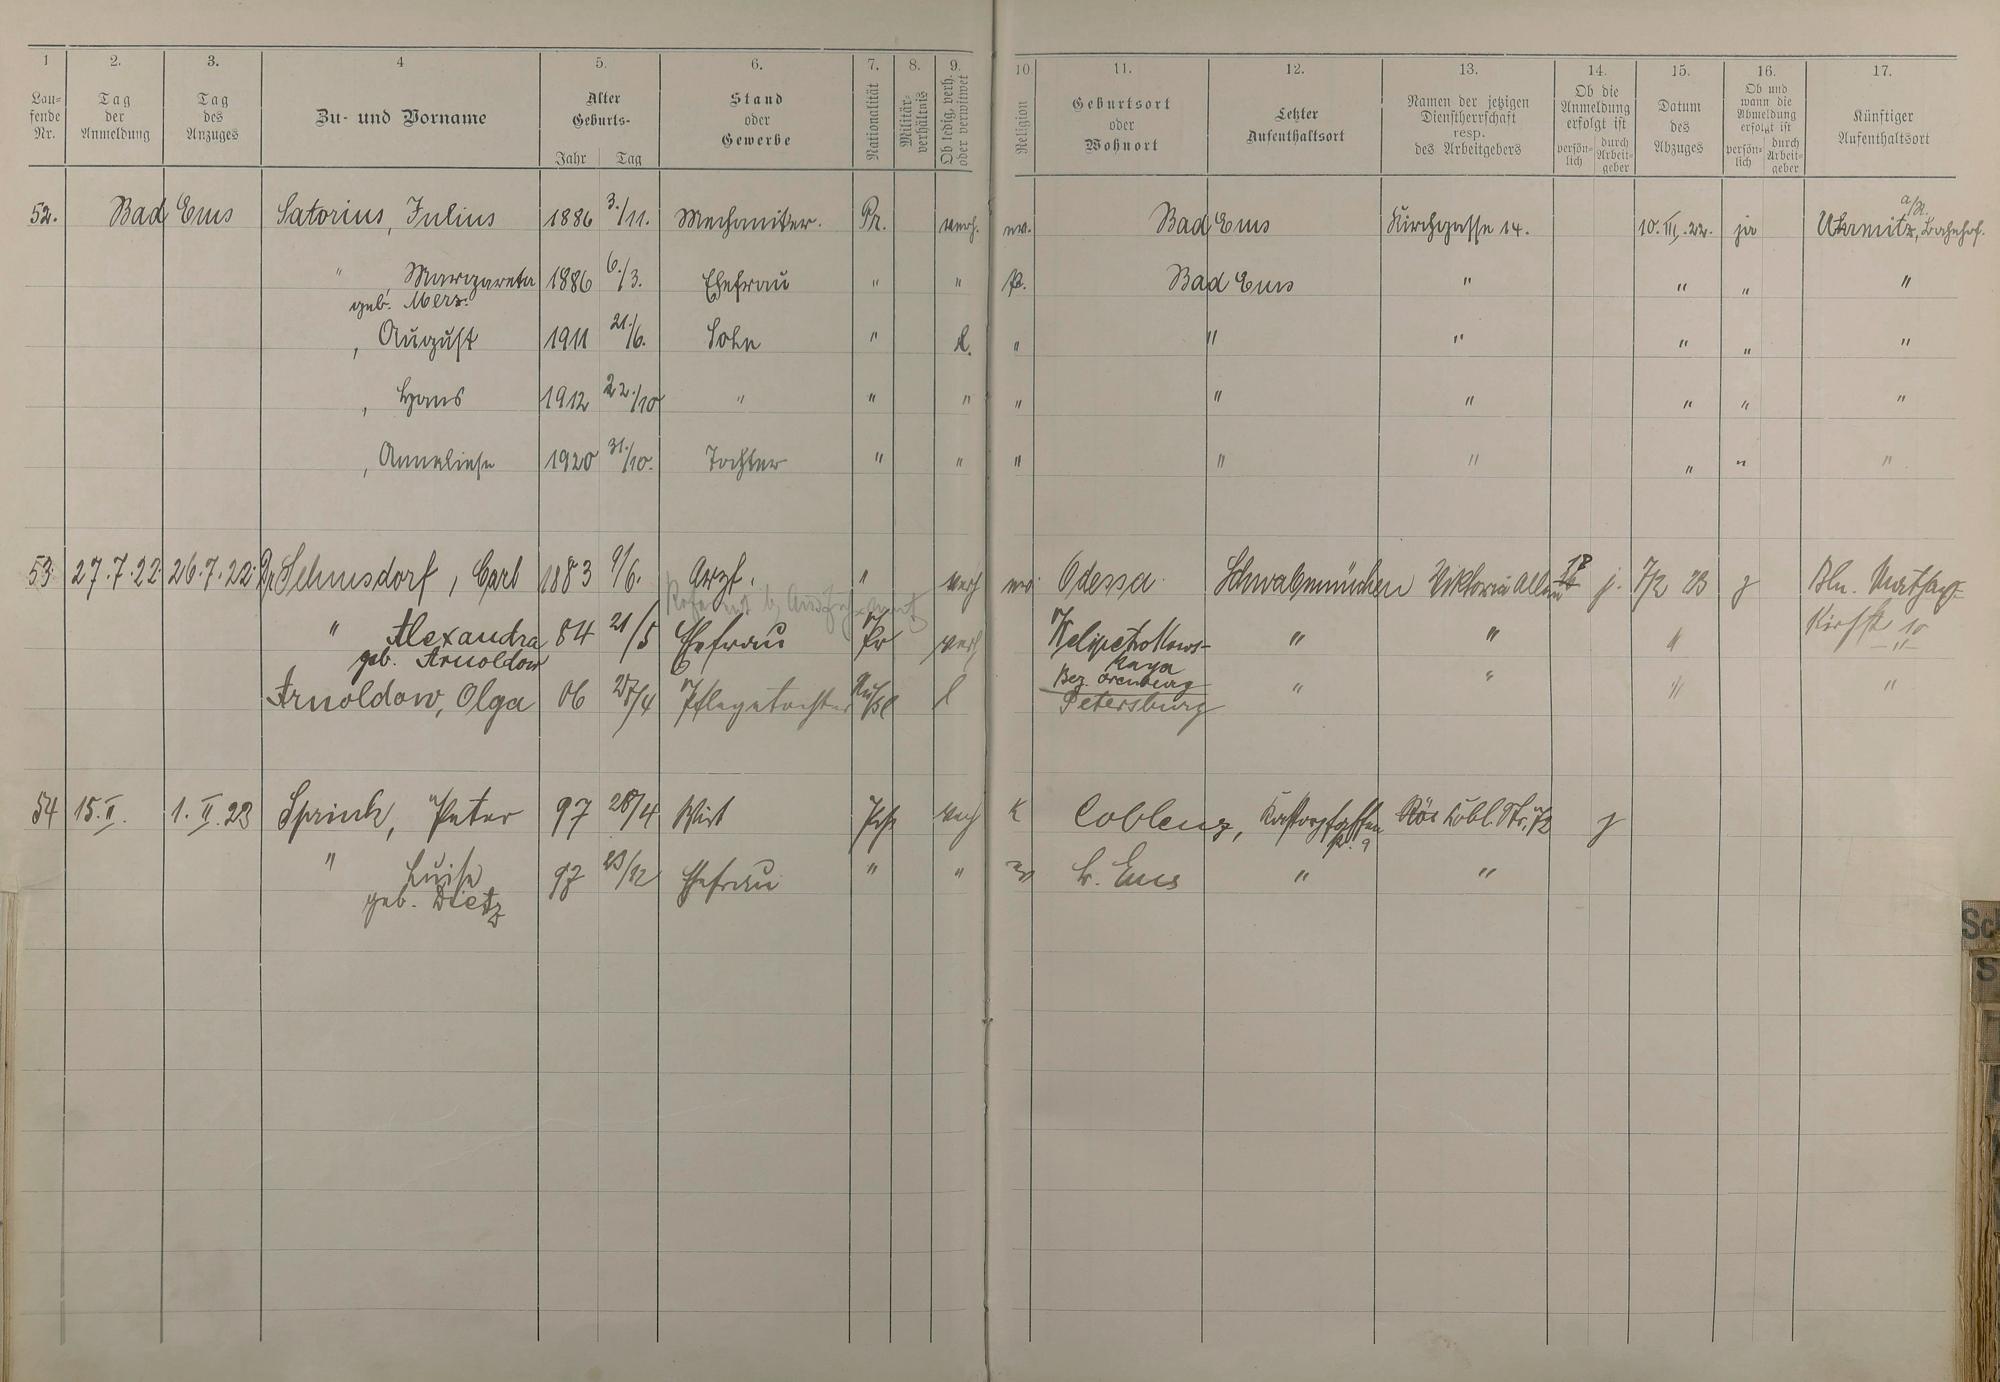 1 2. 3. 4 5. 6. 7. 8. 9. 10. 11. 12. 13. 14. 15. 16. 17.
Lau-
fende
Nr.
Tag
der
Anmeldung
Tag
des
Anzuges
Zu- und Vorname
Alter
Geburts-
Jahr Tag
Stand
oder
Gewerbe
Nationalität
Militär-
verhältnis
Ob ledig, verh.
oder verwitwet
Religion
Geburtsort
oder
Wohnort
Letzter
Aufenthaltsort
Namen der jetzigen
Dienstherrschaft
resp.
des Arbeitgebers
Ob die
Anmeldung
erfolgt ist
persön-
lich
durch
Arbeit-
geber
Datum
des
Abzuges
Ob und
wann die
Abmeldung
erfolgt ist
persön-
lich
durch
Arbeit-
geber
Künftiger
Aufenthaltsort
52. Bad Ems Satorius, Julius 1886 3./11. Mechaniker. Pr. verh. ev. Bad Ems Kirchgasse 14. 10. III. 22. ja Urmitz a/R., Bahnhof.
" , Margareta 1886 6./3. Ehefrau " " Bad Ems " " " "
geb. Merz.
, August 1911 21./6. Sohn " l. " " " " " "
, Hans 1912 22./10 " " " " " " " " "
, Anneliese 1920 31./10. Tochter " " " " " " " "
53 27.7.22. 26.7.22. Dr. Selmsdorf, Carl 1883 9/6. Arzt. " verh ev. Odessa. Schwabmünchen Viktoria Allee 18 j. 7/2 23 j Bln.
" Alexandra 84 21/5 Ehefrau Pr verh " " "
geb. Arnoldow
10
Bez. Orenburg
Arnoldow, Olga 06 27/4 Pflegetochter Rußl l Petersburg " " " "
54 15. II. 1. II. 23 Sprink, Peter 97 28/4 Wirt Prß verh K Coblenz, Kastorpfaffen Cobl. Str. 72 j
" Luise 97 23/12 Ehefrau " " ev B. Ems " "
geb. Dietz
Sch
S